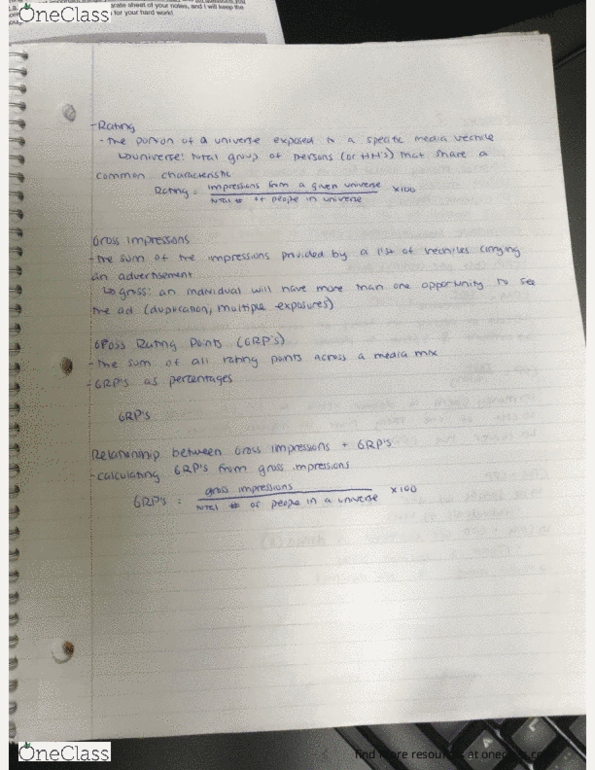 OneClass
arate sheet of your notes, and I will keep the
for your hard work!
-Rating
- The portion of a universe exposed to a specific media vechile
↳universe: total group of persons (or HH's) that share a
common characteristic
Rating = impressions from a given universe x100
total # of people in universe
Gross Impressions
- the sum of the impressions provided by a list of vechiles carrying
an advertisement
↳gross: an individual will have more than one opportunity to see
the ad (duplication, multiple exposures)
Gross Rating Points (GRP's)
- The sum of all rating points across a media mix
- GRP's as percentages
GRP's
Relationship between Gross Impressions + GRP's
- calculating GRP's from gross impressions
GRP's = gross impressions x100
total # of people in a universe
OneClass
find more resources at oneclass.c